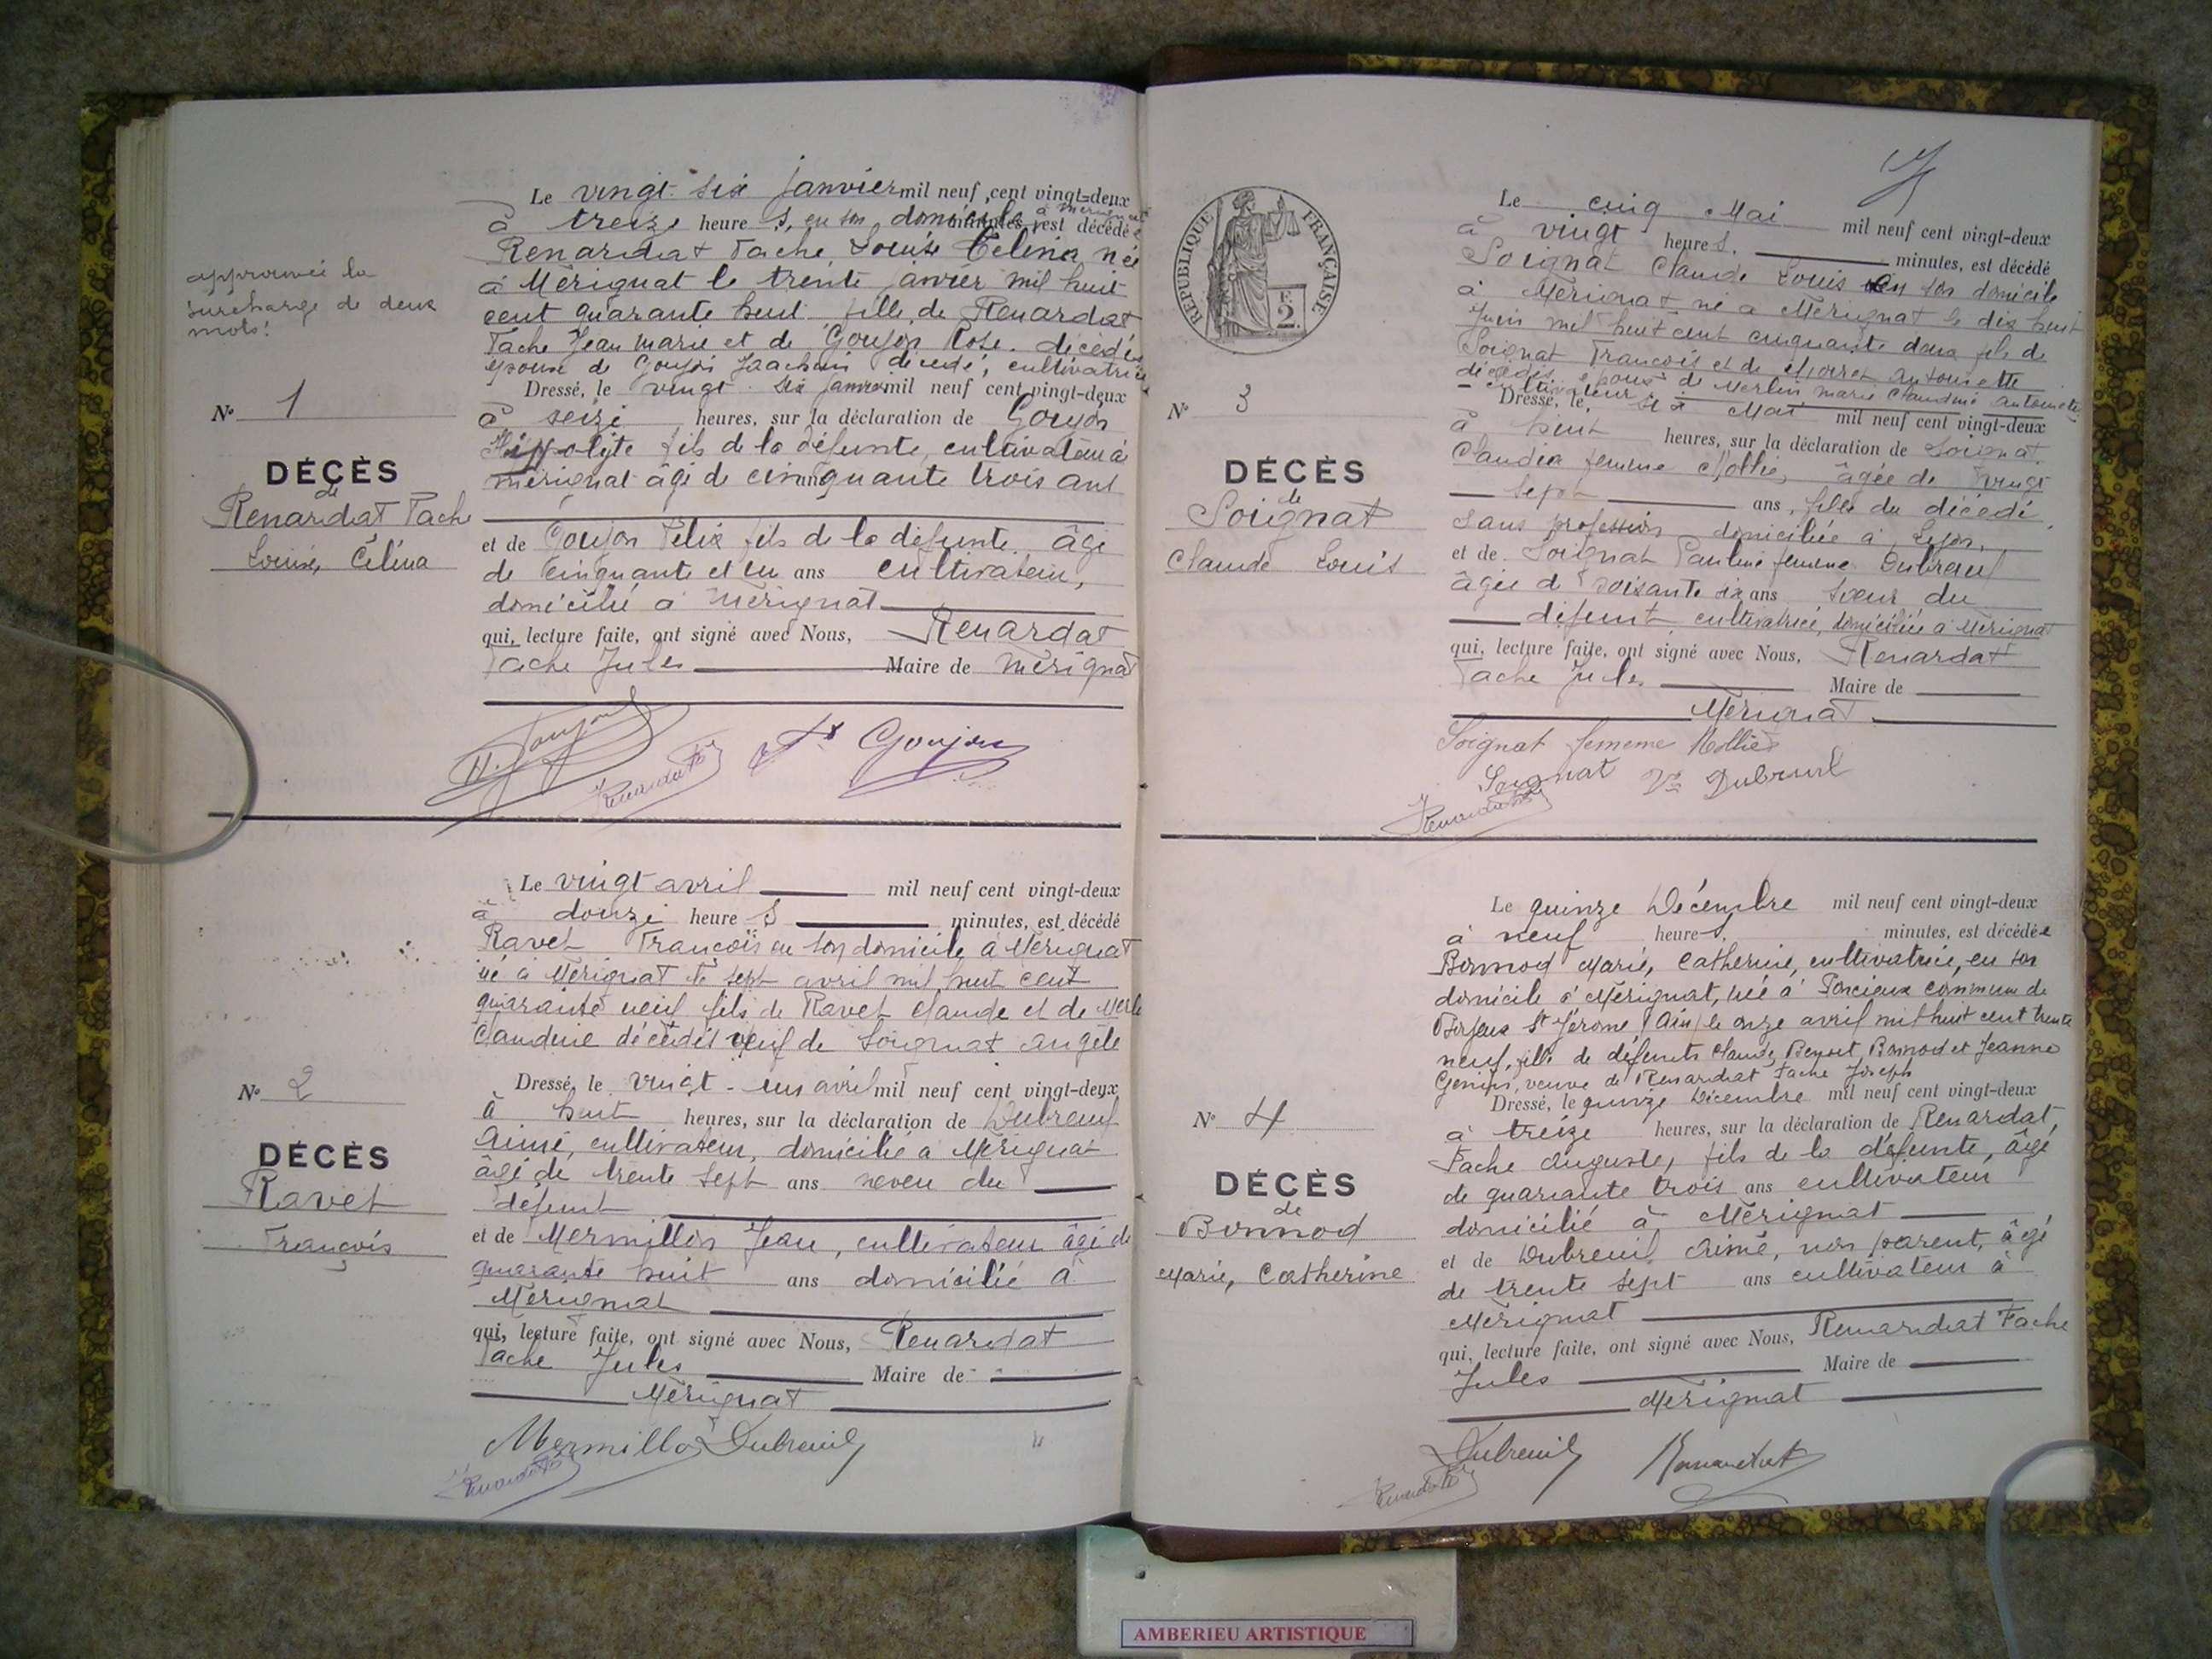 approuvée la
surcharge de deux
mots!
N° 1
DÉCÈS
de
Renardat Fache
Louise, Célina
Le vingt six janvier mil neuf cent vingt-deux
à treize heures, en son domicile à Mérignat minutes, est décédée
Renardat Fache, Louise Célina, née
à Mérignat le trente janvier mil huit
cent quarante huit fille de Renardat
Fache Jean marie et de Goujon Rose. décédés
épouse de Goujon Joachim décédé, cultivatrice
Dressé, le vingt six janvier mil neuf cent vingt-deux
à seize heures, sur la déclaration de Goujon
Hippolyte fils de la défunte, cultivateur à
mérignat âgé de cinquante trois ans
et de Goujon Félix fils de la défunte. âgé
de cinquante et un ans cultivateur,
domicilié à Mérignat
qui, lecture faite, ont signé avec Nous, Renardat
Fache Jules Maire de Mérignat
H. Goujon
Renardat F. Goujon
N° 2
DÉCÈS
Ravet
François
Le vingt avril mil neuf cent vingt-deux
à douze heures minutes, est décédé
Ravet François en son domicile à Mérignat
né à Mérignat le sept avril mil huit cent
quarante neuf fils de Ravet Claude et de Merle
Claudine décédés veuf de Soignat angèle
Dressé, le vingt-un avril mil neuf cent vingt-deux
à huit heures, sur la déclaration de Dubreuil
Aimé, cultivateur, domicilié à Mérignat
âgé de trente sept ans neveu du
défunt
et de Mermillon Jean, cultivateur âgé de
quarante huit ans domicilié à
Mérignat
qui, lecture faite, ont signé avec Nous, Renardat
Fache Jules Maire de
Mérignat
Mermillon Dubreuil
Renardat
REPUBLIQUE FRANÇAISE
2 F.
N° 3
DÉCÈS
de
Soignat
Claude Louis
Le cinq Mai mil neuf cent vingt-deux
à vingt heures. minutes, est décédé
Soignat Claude Louis en son domicile
à Mérignat né à Mérignat le dix huit
Juin mil huit cent cinquante deux fils de
Soignat François et de antoinette
décédés, époux de Merlin marie Claudine antoinette
cultivateur
Dressé, le six Mai mil neuf cent vingt-deux
à huit heures, sur la déclaration de Soignat
Claudia femme Mollie, âgée de vingt
sept ans, fille du décédé,
sans profession domiciliée à Lyon,
et de Soignat Pauline femme Dubreuil
âgée de soixante six ans soeur du
défunt, cultivatrice, domiciliée à Mérignat
qui, lecture faite, ont signé avec Nous, Renardat
Fache Jules Maire de
Mérignat
Soignat femme Mollie
Soignat Ve Dubreuil
Renardat
N° 4
DÉCÈS
de
Bonnod
Marie, Catherine
Le quinze Décembre mil neuf cent vingt-deux
à neuf heures minutes, est décédée
Bonnod Marie, Catherine, cultivatrice, en son
domicile à Mérignat, née à Poncieux commune de
Boyeux St Jérôme (Ain) le onze avril mil huit cent trente
neuf, fille de défunts Claude Benoit Bonnod et Jeanne
Genin, veuve de Renardat Fache Joseph
Dressé, le quinze Décembre mil neuf cent vingt-deux
à treize heures, sur la déclaration de Renardat,
Fache Auguste, fils de la défunte, âgé
de quarante trois ans cultivateur
domicilié à Mérignat
et de Dubreuil Aimé, non parent, âgé
de trente sept ans cultivateur à
Mérignat
qui, lecture faite, ont signé avec Nous, Renardat Fache
Jules Maire de
Mérignat
Dubreuil Renardat
Renardat
AMBERIEU ARTISTIQUE